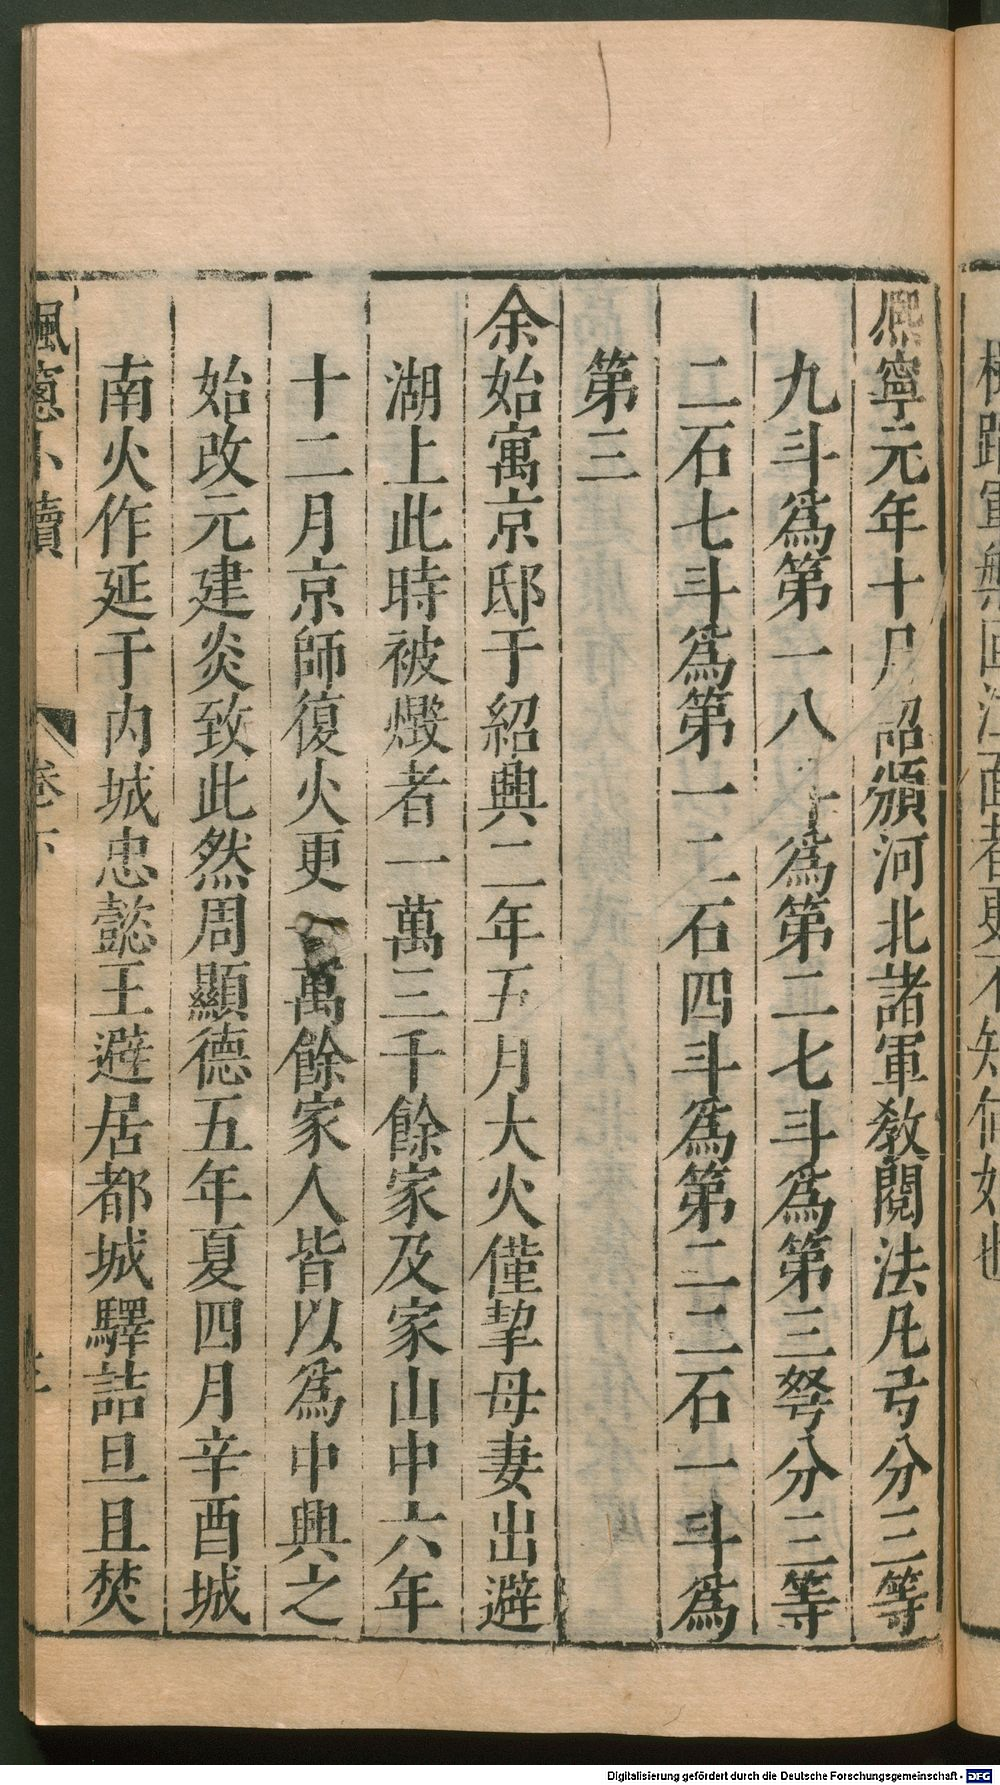 熈寧元年十月詔頒河北諸軍教閱法凡弓分三等
九斗爲第一八斗爲第二七斗爲第三弩分三等
二石七斗爲第一二石四斗爲第二二石一斗爲
第三
余始寓京邸于紹興二年五月大火僅挈母妻出避
湖上此時被燬者一萬三千餘家及家山中六年
十二月京師復火更一萬餘家人皆以爲中興之
始改元建炎致此然周顯德五年夏四月辛酉城
南火作延于内城忠懿王避居都城驛詰旦且焚
楓窻小牘 卷下
Digitalisierung gefördert durch die Deutsche Forschungsgemeinschaft - DFG